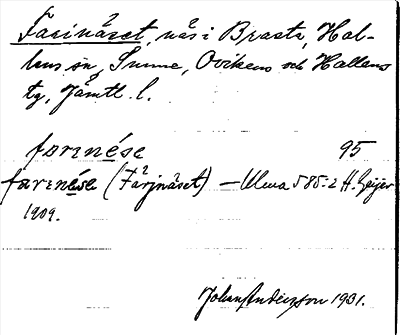 Färinäset, näs i Bracta, Hal-
lens sn, Sunne, Ovikens och Hallens
tg, Jämtl. l.
farınése 95
farınése (Färjnäset) – Ulma 585:2 H. Geijer
1909.
Johan Anderzson 1931.